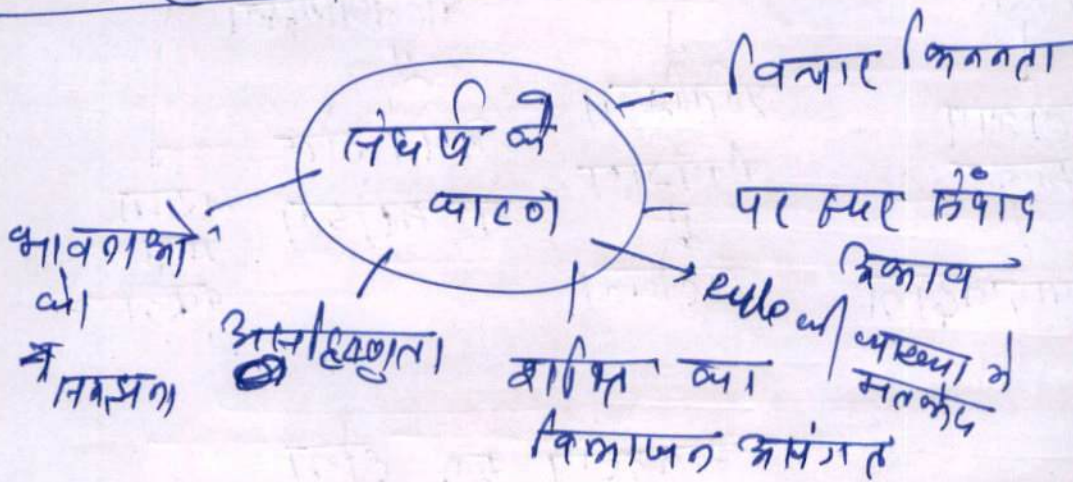 संघर्ष के
कारण
विचार भिन्नता
परस्पर संवाद
अभाव
rule की व्याख्या में
मतभेद
शक्ति का
विभाजन असंगत
असहिष्णुता
भावनाओं
को
न समझना